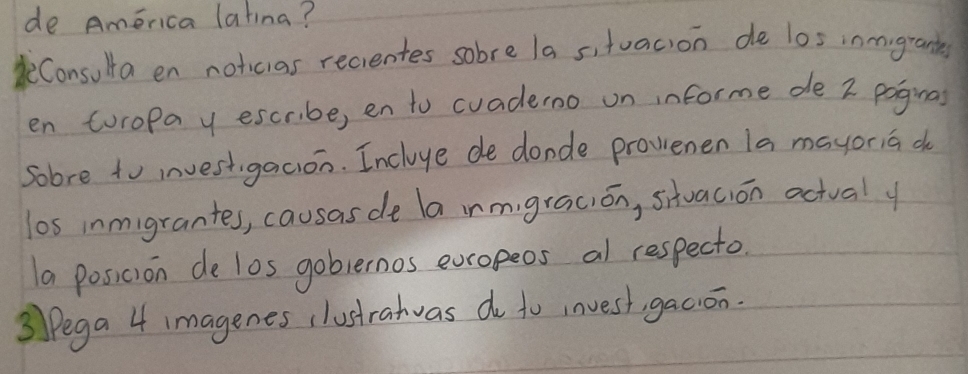 de América latina?
2 Consulta en noticias recientes sobre la situación de los inmigrantes
en Europa y escribe, en tu cuaderno un informe de 2 páginas
Sobre tu investigación. Incluye de donde provienen la mayoría de
los inmigrantes, causas de la inmigración, situación actual y
la posición de los gobiernos europeos al respecto.
3) Pega 4 imagenes ilustrativas de tu investigación.